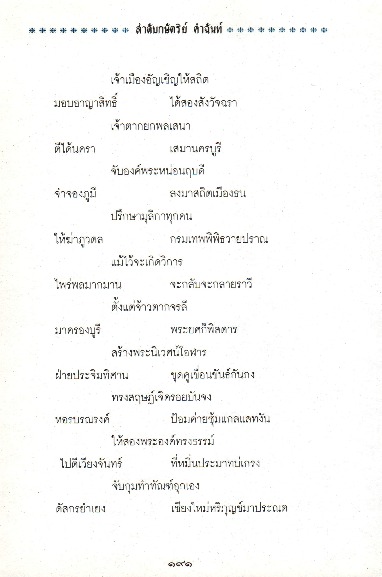 ลำดับกษัตริย์ คำฉันท์
เจ้าเมืองอัญเชิญให้สถิต
มอบอาญาสิทธิ์ ได้สองสังวัจฉรา
เจ้าตากยกพลเสนา
ตีได้นครา เสมานครบูรี
จับองค์พระหน่อนฤบดี
จำจองภูมี ลงมาสถิตเมืองธน
ปรึกษามุลิกาทุกคน
ให้ฆ่าภูวดล กรมเทพพิพิธวายปราณ
แม้ไว้จะเกิดวิการ
ไพร่พลมากมาน จะกลับจะกลายราวี
ตั้งแต่จ้าวตากจรลี
มาครองบูรี พระยศก็พิสดาร
สร้างพระนิเวศน์โอฬาร
ฝ่ายประจิมทิศาน ขุดคูเขื่อนขันธ์กันกง
ทรงสฤษฎ์เจิดรอยบันจง
หอรบรณรงค์ ป้อมค่ายซุ้มแกลแลทงัน
ให้สองพระองค์ทรงธรรม์
ไปตีเวียงจันทร์ ที่หมิ่นประมาทบ่เกรง
จับกุมทำทัณฑ์ฉุกเอง
ดัสกรยำเยง เชียงใหม่หริภุญช์มาประณต
๑๙๑